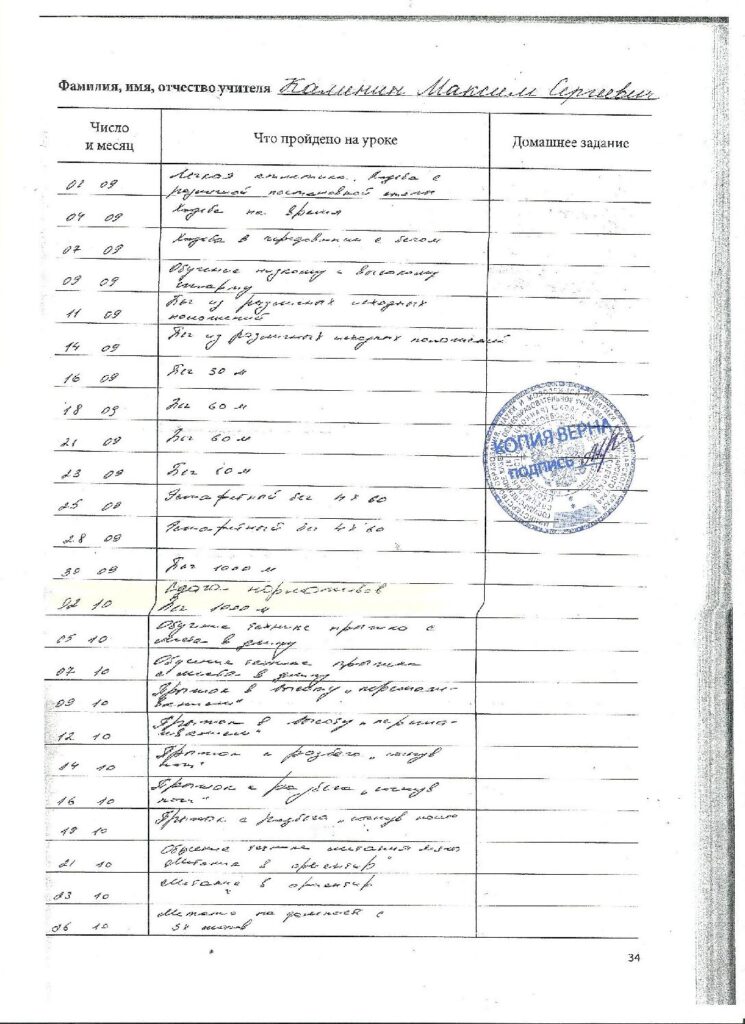 Фамилия, имя, отчество учителя Калинин Максим Сергеевич
Число
и месяц
Что пройдено на уроке
Домашнее задание
02 09 Легкая атлетика. Ходьба с
различной постановкой стопы
04 09 Ходьба на время
07 09 Ходьба в чередовании с бегом
09 09 Обучение низкому и высокому
старту
11 09 Бег из различных исходных
положений
14 09 Бег из различных исходных положений
16 09 Бег 30 м
18 09 Бег 60 м
21 09 Бег 60 м
23 09 Бег 60 м
25 09 Эстафетный бег 4х60
28 09 Эстафетный бег 4х60
30 09 Бег 1000 м
Сдача нормативов
02 10 Бег 1000 м
05 10 Обучение технике прыжка с
места в длину
07 10 Обучение технике прыжка
с места в длину
09 10 Прыжок в высоту „перешаги-
ванием"
12 10 Прыжок в высоту „переша-
гиванием"
14 10 Прыжок с разбега „согнув
ноги"
16 10 Прыжок с разбега „согнув
ноги"
19 10 Прыжок с разбега „согнув ноги
21 10 Обучение технике метания мяча
Метание в ориентир"
23 10 Метание в ориентир
26 10 Метание на дальность с
5х шагов
КОПИЯ ВЕРНА
ПОДПИСЬ
34